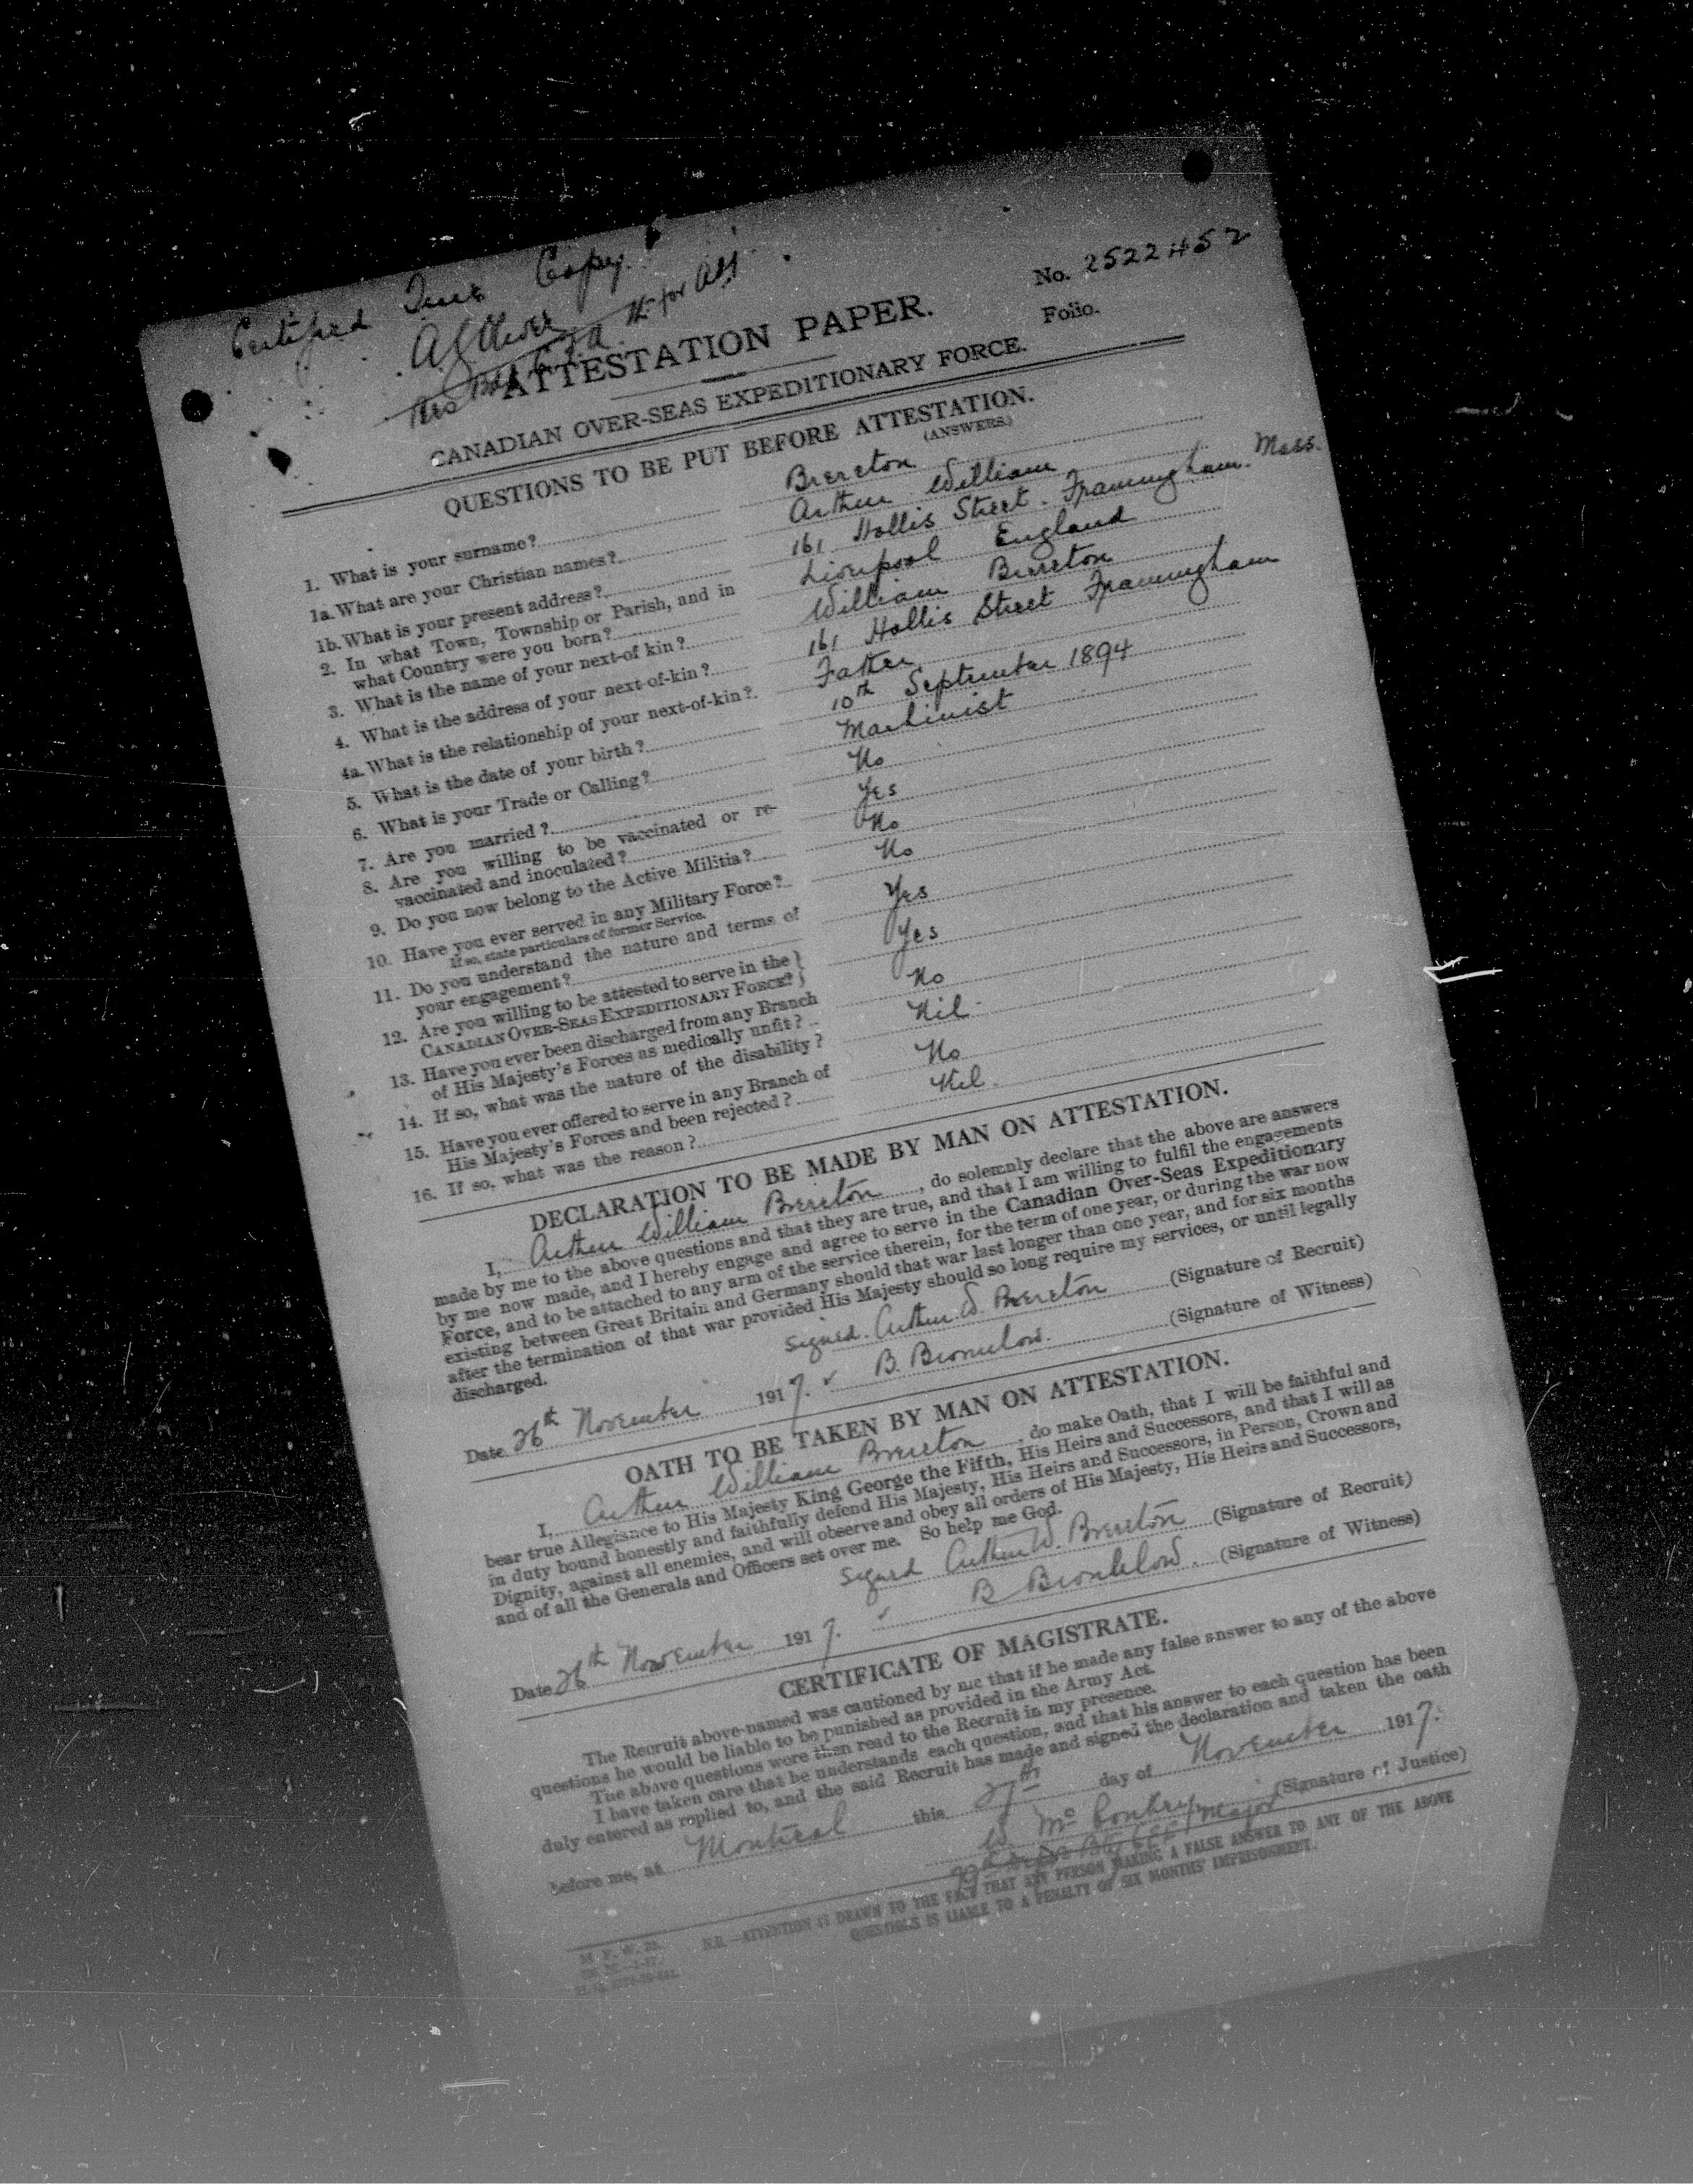 Certified True Copy.
No. 2522452
Folio.
for Adj
ATTESTATION PAPER.
CANADIAN OVER-SEAS EXPEDITIONARY FORCE.
QUESTIONS TO BE PUT BEFORE ATTESTATION.
(ANSWERS.)
1. What is your surname? Brereton
1a. What are your Christian names? Arthur William
1b. What is your present address? 161 Hollis Street. Framingham. Mass.
2. In what Town, Township or Parish, and in
what Country were you born? Liverpool England
3. What is the name of your next-of kin? William Brereton
4. What is the address of your next-of-kin? 161 Hollis Street Framingham
4a. What is the relationship of your next-of-kin? Father
5. What is the date of your birth? 10th September 1894
6. What is your Trade or Calling? Machinist
7. Are you married? No
8. Are you willing to be vaccinated or re-
vaccinated and inoculated? Yes
9. Do you now belong to the Active Militia? No
10. Have you ever served in any Military Force? No
If so, state particulars of former Service.
11. Do you understand the nature and terms of
your engagement? Yes
12. Are you willing to be attested to serve in the
CANADIAN OVER-SEAS EXPEDITIONARY FORCE? Yes
13. Have you ever been discharged from any Branch
of His Majesty's Forces as medically unfit? No
14. If so, what was the nature of the disability? Nil.
15. Have you ever offered to serve in any Branch of
His Majesty's Forces and been rejected? No
16. If so, what was the reason? Nil.
DECLARATION TO BE MADE BY MAN ON ATTESTATION.
I, Arthur William Brereton, do solemnly declare that the above are answers
made by me to the above questions and that they are true, and that I am willing to fulfil the engagements
by me now made, and I hereby engage and agree to serve in the Canadian Over-Seas Expeditionary
Force, and to be attached to any arm of the service therein, for the term of one year, or during the war now
existing between Great Britain and Germany should that war last longer than one year, and for six months
after the termination of that war provided His Majesty should so long require my services, or until legally
discharged.
signed. Arthur W. Brereton (Signature of Recruit)
Date 26th November 1917. B. (Signature of Witness)
OATH TO BE TAKEN BY MAN ON ATTESTATION.
I, Arthur William Brereton, do make Oath, that I will be faithful and
bear true Allegiance to His Majesty King George the Fifth, His Heirs and Successors, and that I will as
in duty bound honestly and faithfully defend His Majesty, His Heirs and Successors, in Person, Crown and
Dignity, against all enemies, and will observe and obey all orders of His Majesty, His Heirs and Successors,
and of all the Generals and Officers set over me. So help me God.
signed Arthur W. Brereton (Signature of Recruit)
Date 26th November 1917. B (Signature of Witness)
CERTIFICATE OF MAGISTRATE.
The Recruit above-named was cautioned by me that if he made any false answer to any of the above
questions he would be liable to be punished as provided in the Army Act.
The above questions were then read to the Recruit in my presence.
I have taken care that he understands each question, and that his answer to each question has been
duly entered as replied to, and the said Recruit has made and signed the declaration and taken the oath
before me, at Montreal this 27th day of November 1917.
Major (Signature of Justice)
N.B.—ATTENTION IS DRAWN TO THE FACT THAT ANY PERSON MAKING A FALSE ANSWER TO ANY OF THE ABOVE
QUESTIONS IS LIABLE TO A PENALTY OF SIX MONTHS' IMPRISONMENT.
M. F. W. 23.